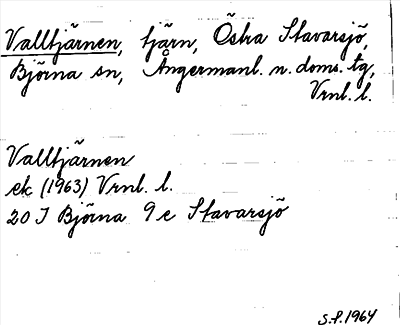 Valltjärnen, tjärn, Östra Stavarsjö,
Björna sn, Ångermanl. n. doms. tg,
Vrnl. l.
Valltjärnen
ek (1963) Vrnl. l.
20 J Björna 9 e Stavarsjö
S.P. 1964